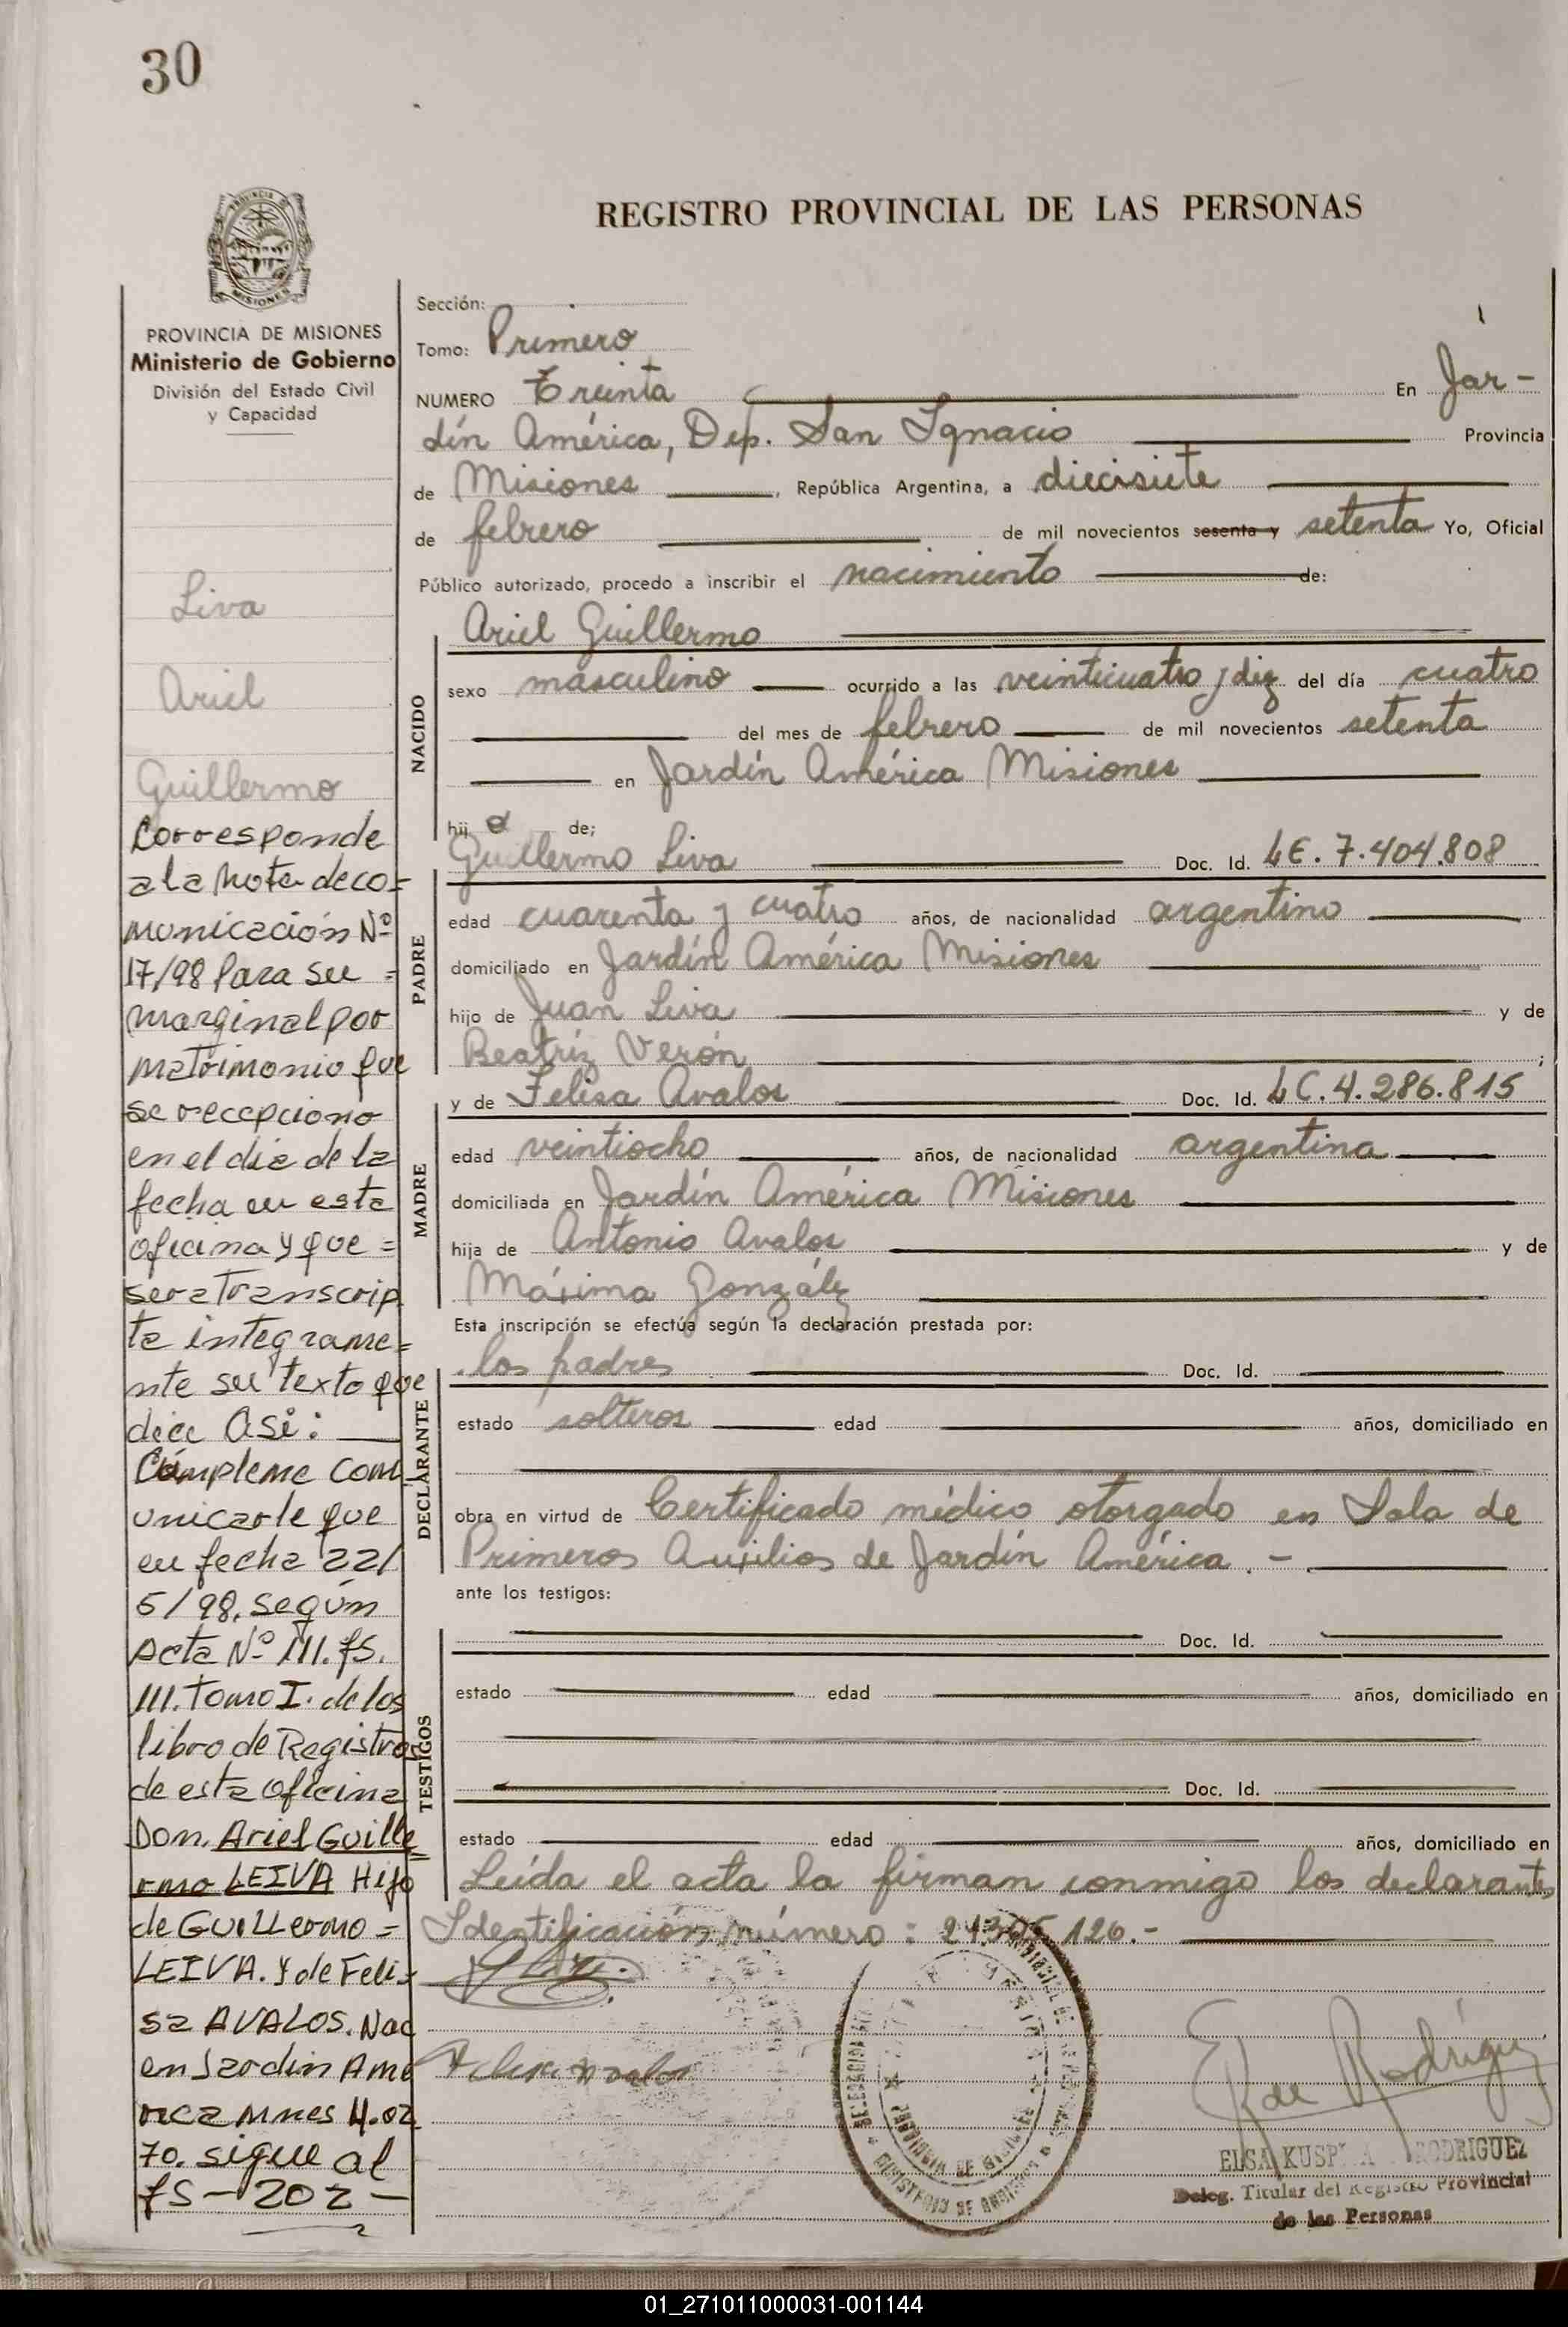 30
REGISTRO PROVINCIAL DE LAS PERSONAS
MISIONES
PROVINCIA DE MISIONES
Ministerio de Gobierno
División del Estado Civil
y Capacidad
Liva
Ariel
Guillermo
Corresponde
a la Nota de co=
municación Nº
17/98 Para su =
marginal por
matrimonio que
se recepciono
en el dia de la
fecha en esta
oficina y que =
sera Transcrip
ta integrame=
nte su texto que
dice Asi:
Cúmpleme com
unicarle que
en fecha 22/
5/98. según
Acta Nº 111. fs.
111. Tomo I. de los
libro de Registros
de esta oficina
Don. Ariel Guille
rmo LEIVA Hijo
de Guillermo =
LEIVA. Y de Feli-
sa AVALOS. Nac
en Jardin Ame
rica Mnes 4.02
70. sigue al
fs - 202 -
Sección:
Tomo: Primero
NUMERO Treinta En Jar-
dín América, Dep. San Ignacio Provincia
de Misiones, República Argentina, a diecisiete
de febrero de mil novecientos sesenta y setenta Yo, Oficial
Público autorizado, procedo a inscribir el nacimiento de:
NACIDO
Ariel Guillermo
sexo masculino ocurrido a las veinticuatro y diez del día cuatro
del mes de febrero de mil novecientos setenta
en Jardín América Misiones
hij o de;
PADRE
Guillermo Liva Doc. Id. LE. 7.404.808
edad cuarenta y cuatro años, de nacionalidad argentino
domiciliado en Jardín América Misiones
hijo de Juan Liva y de
Beatríz Verón ;
MADRE
y de Felisa Avalos Doc. Id. LC. 4.286.815
edad veintiocho años, de nacionalidad argentina
domiciliada en Jardín América Misiones
hija de Antonio Avalos y de
Máxima González
Esta inscripción se efectúa según la declaración prestada por:
DECLARANTE
los padres Doc. Id.
estado solteros edad años, domiciliado en
obra en virtud de Certificado médico otorgado en Sala de
Primeros Auxilios de Jardín América. -
ante los testigos:
TESTIGOS
Doc. Id.
estado edad años, domiciliado en
Doc. Id.
estado edad años, domiciliado en
Leída el acta la firman conmigo los declarantes
Identificación número: 126.-
E K de Rodríguez
ELSA RODRIGUEZ
Deleg. Titular del Registro Provincial
de las Personas
01_271011000031-001144